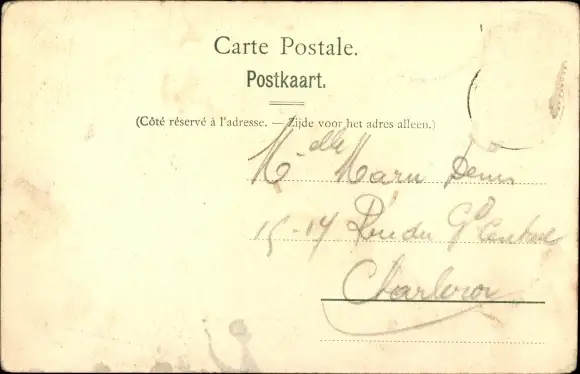 Carte Postale.
Postkaart.
(Côté réservé à l'adresse. — Zijde voor het adres alleen.)
Melle Marie Denis
15-17 Rue du Gd Central
Charleroi